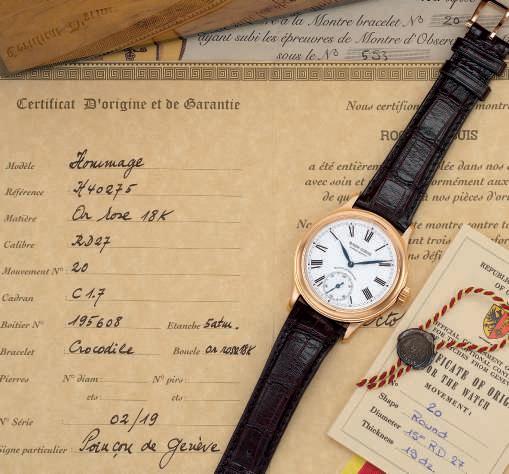 à la Montre bracelet No 20
ayant subi les épreuves de Montre d'Obser
sous le No 553
Certificat D'origine et de Garantie
Nous certifion montr
ROG UIS
Modèle Hommage
Référence H40275
Matière Or rose 18K
Calibre RD27
Mouvement No: 20
Cadran C 1.7
Boîtier No 195608 Etanche 5atm.
Bracelet Crocodile Boucle or rose 18K
Pierres No diam: No pirs:
cts: cts:
No Série 02/19
Signe particulier Poinçon de Genève
a été entièrem dans nos
avec soin et ormément aux
de qu nos pièces d'ori
ROGER DUBUIS
REPUBLI
OF G
OFFICIAL
FOR WATCHES FROM GENEV
CERTIFICATE OF ORIG
FOR THE WATCH
MOVEMENT:
No 20
Shape Round
Diameter RD. 27
Thickness